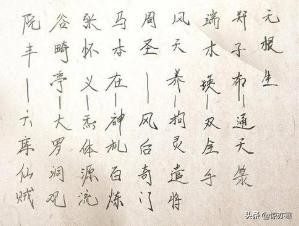 无根生
郑子布—通天箓
端木瑛—双全手
风天养—拘灵遣将
周圣—风后奇门
马本在—神机百炼
张怀义—炁体源流
谷畸亭—大罗洞观
阮丰—六库仙贼
头条